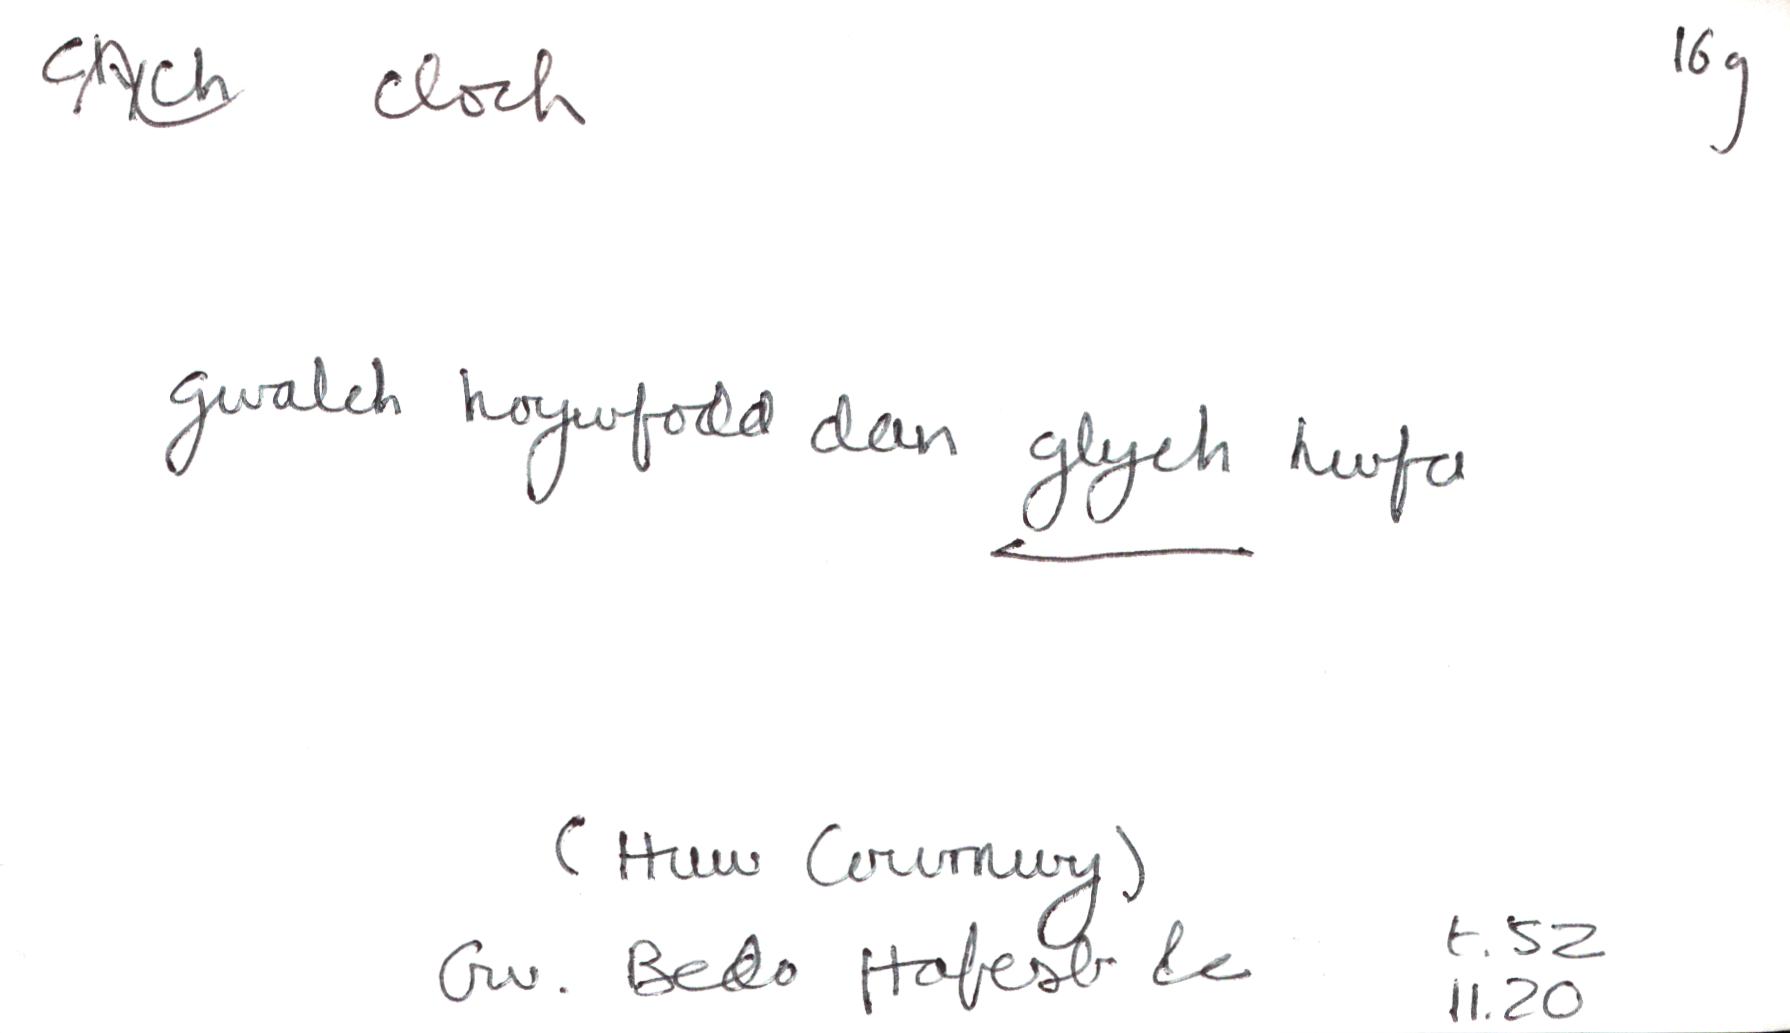 clych cloch 16g
gwalch hoywfodd dan glych hwfa
(Huw Cowrnwy)
Gw. Bedo Hafesb &c t. 52
11.20